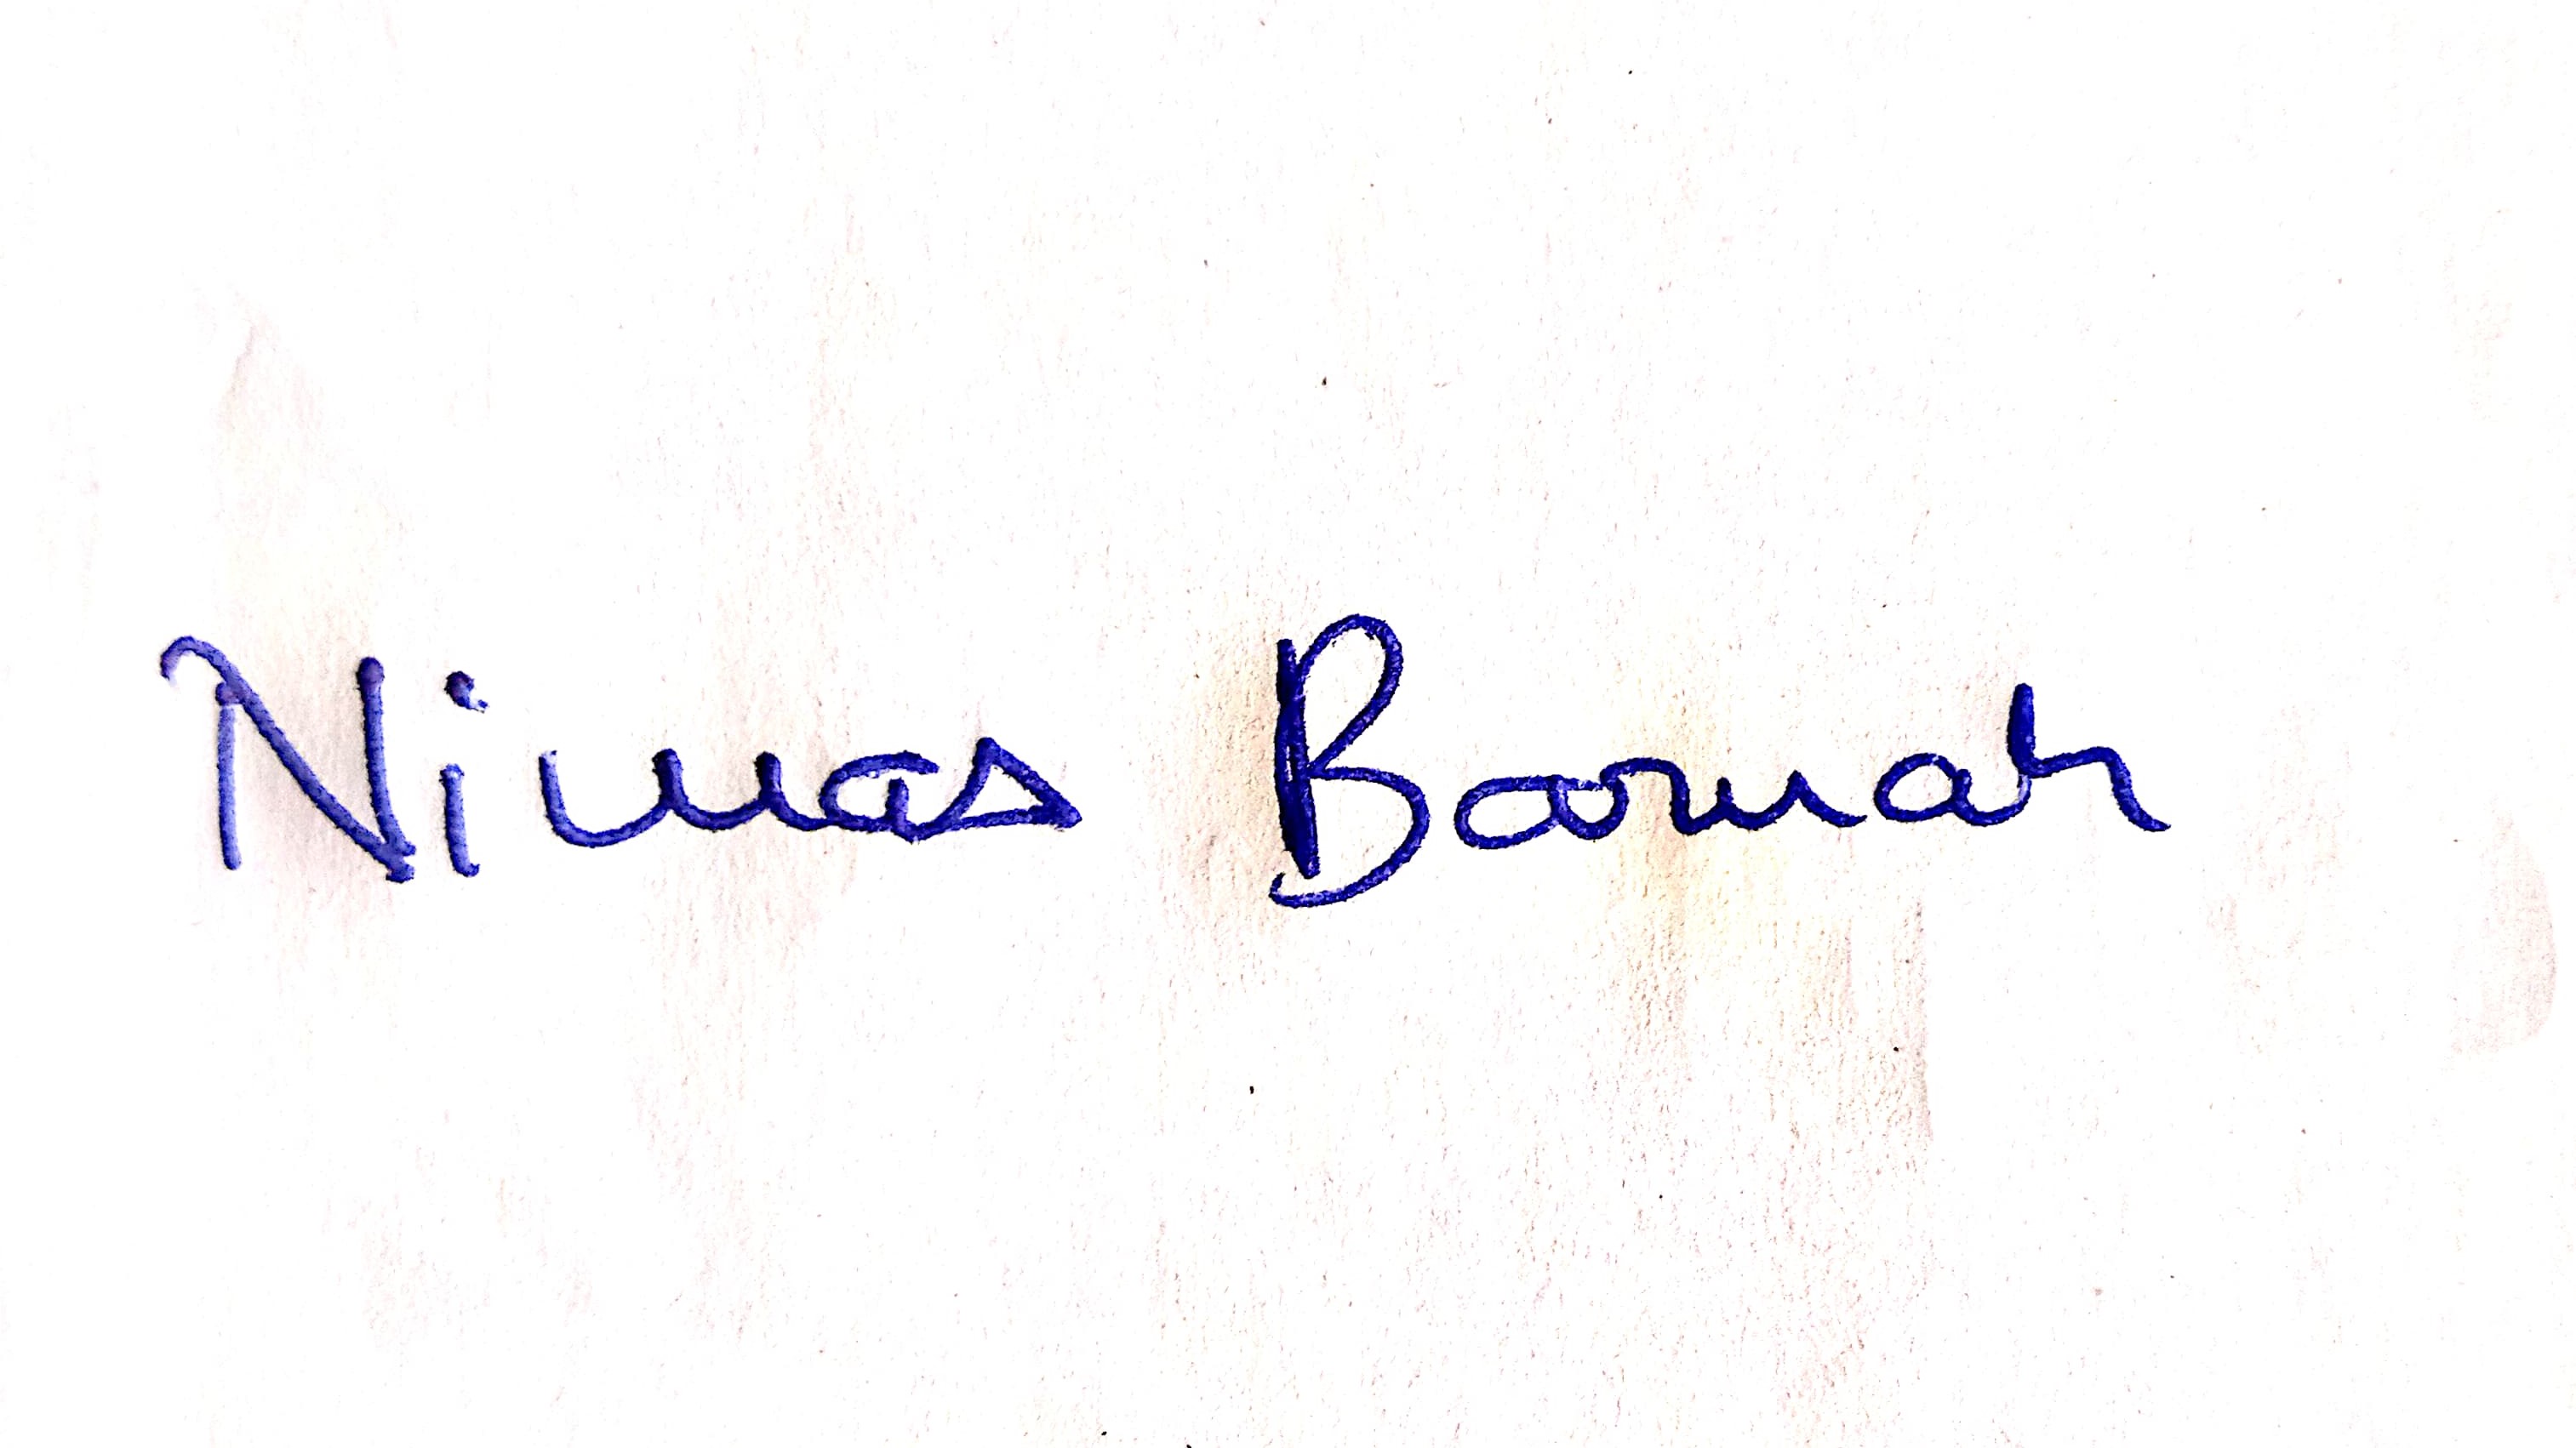 Nimas Baruah